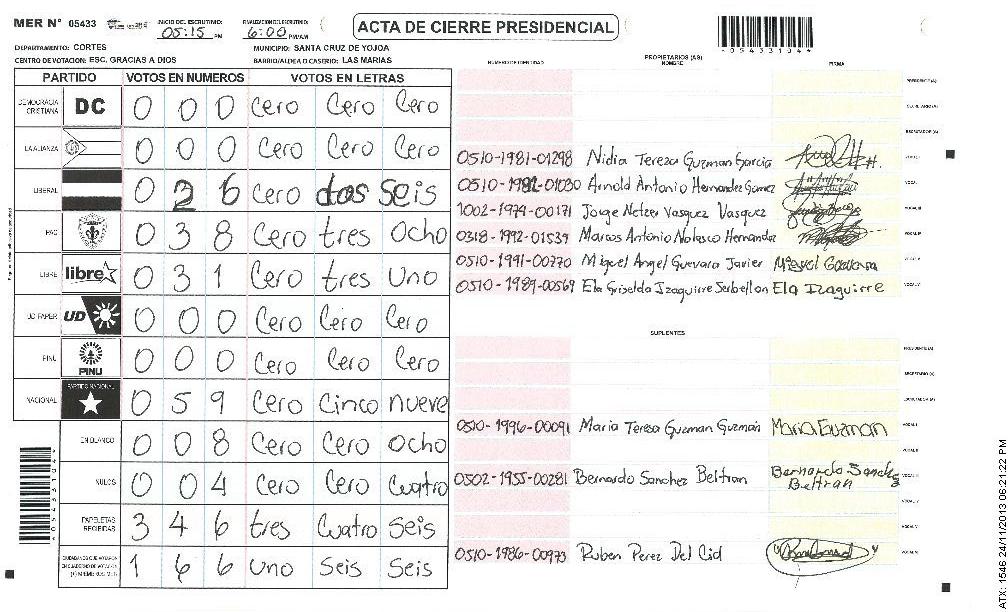 MER N° 05433
INICIO DEL ESCRUTINIO: 05:15 PM
FINALIZACION DEL ESCRUTINIO: 6:00 PM/AM
ACTA DE CIERRE PRESIDENCIAL
*05433104*
DEPARTAMENTO: CORTES
MUNICIPIO: SANTA CRUZ DE YOJOA
CENTRO DE VOTACION: ESC. GRACIAS A DIOS
BARRIO/ALDEA O CASERIO: LAS MARIAS
PARTIDO VOTOS EN NUMEROS VOTOS EN LETRAS
DEMOCRACIA CRISTIANA DC 0 0 0 Cero Cero Cero
LA ALIANZA 0 0 0 Cero Cero Cero
LIBERAL 0 2 6 Cero dos Seis
PAC 0 3 8 Cero tres Ocho
LIBRE libre 0 3 1 Cero tres Uno
UD FAPER UD 0 0 0 Cero Cero Cero
PINU PINU 0 0 0 Cero Cero Cero
NACIONAL PARTIDO NACIONAL 0 5 9 Cero Cinco nueve
EN BLANCO 0 0 8 Cero Cero Ocho
NULOS 0 0 4 Cero Cero Cuatro
PAPELETAS RECIBIDAS 3 4 6 tres Cuatro Seis
CIUDADANOS QUE VOTARON EN CUADERNO DE VOTACION (+) MIEMBROS MER 1 6 6 Uno Seis Seis
*05433104*
NUMERO DE IDENTIDAD
PROPIETARIOS (AS)
NOMBRE
FIRMA
PRESIDENTE (A)
SECRETARIO (A)
ESCRUTADOR (A)
0510-1981-01298 Nidia Tereza Guzman Garcia VOCAL I
0510-1982-01030 Arnold Antonio Hernandez Gomez VOCAL II
1002-1974-00171 Jorge Netzer Vasquez Vasquez VOCAL III
0318-1992-01539 Marcos Antonio Nolasco Hernandez VOCAL IV
0510-1991-00770 Miguel Angel Guevara Javier Miguel Guevara VOCAL V
0510-1989-00569 Ela Griselda Izaguirre Serbellon Ela Izaguirre VOCAL VI
SUPLENTES
PRESIDENTE (A)
SECRETARIO (A)
ESCRUTADOR (A)
0510-1996-00091 Maria Teresa Guzman Guzmán Maria Guzman VOCAL I
VOCAL II
0502-1955-00281 Bernardo Sanchez Beltran Bernardo Sanchez Beltran VOCAL III
VOCAL IV
VOCAL V
0510-1986-00973 Ruben Perez Del Cid VOCAL VI
ATX: 1546 24/11/2013 06:21:22 PM